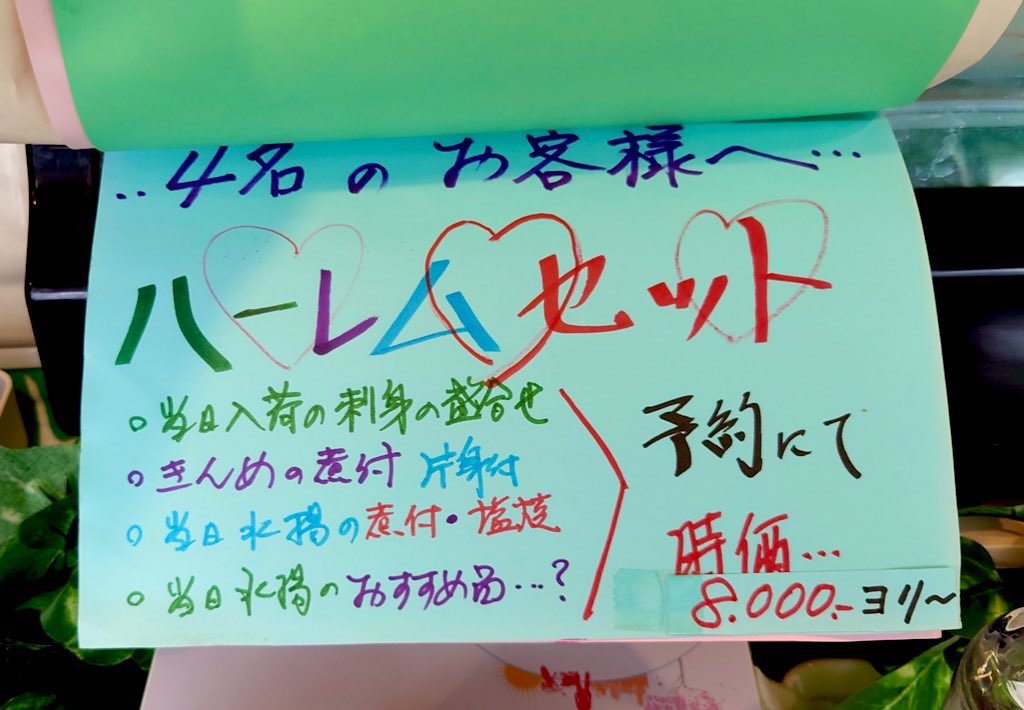 ..4名のお客様へ...
ハーレムセット
○当日入荷の刺身の盛合せ
○きんめの煮付 片身付
○当日水揚の煮付・塩焼
○当日水揚のおすすめ品...?
予約にて
時価...
8.000.-ヨリ〜